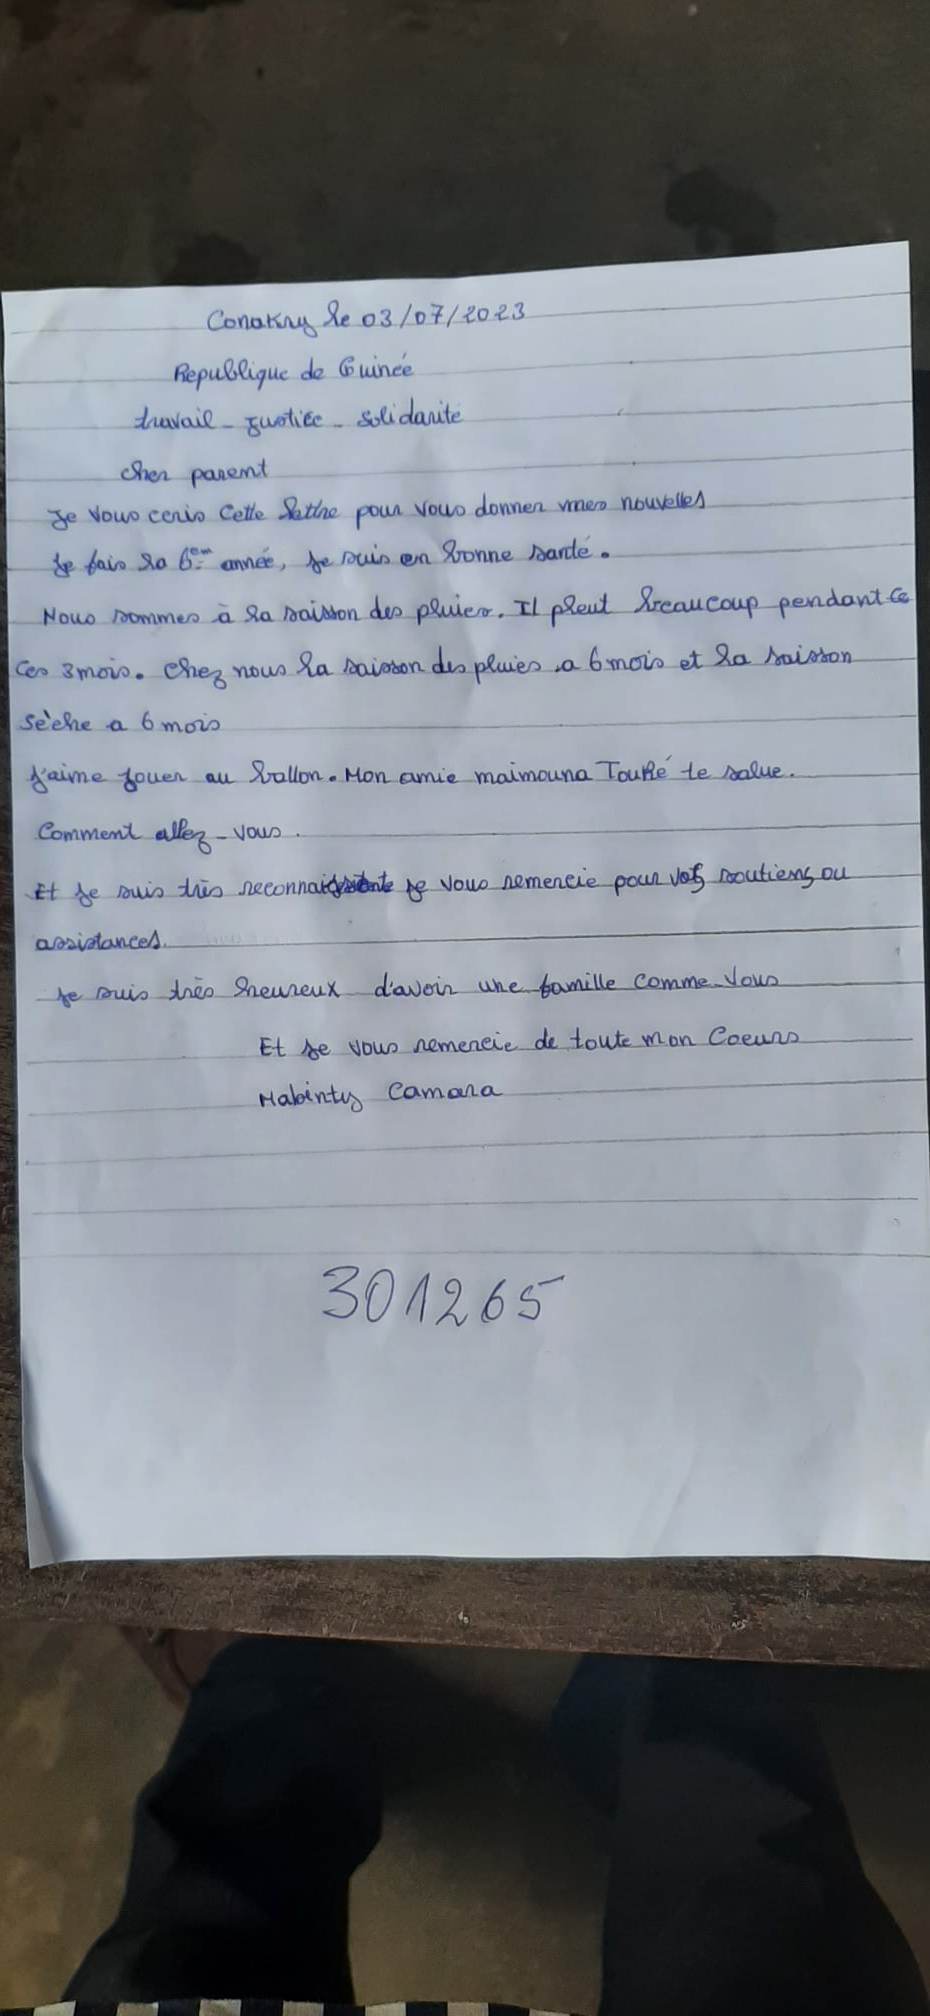 Conakry le 03/07/2023
Republique de Guinée
travail - justice - solidarité
cher parent
Je vous ecris Cette lettre pour vous donner mes nouvelles
Je fais la 6em année, je suis en bonne santé.
Nous sommes à la saison des pluies. Il pleut beaucoup pendant ce
ces 3 mois. chez nous la saison des pluies a 6 mois et la saison
sèche a 6 mois
J'aime jouer au ballon. Mon amie maimouna Touré te salue.
Comment allez-vous.
Et je suis très reconnaissante je vous remercie pour vos soutiens ou
assistances.
Je suis très heureux d'avoir une famille comme vous
Et je vous remercie de toute mon Coeurs
Mabinty Camara
301265